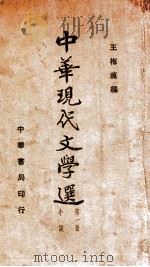 王梅痕編
中華現代文學選
第一冊
小說
中華書局印行